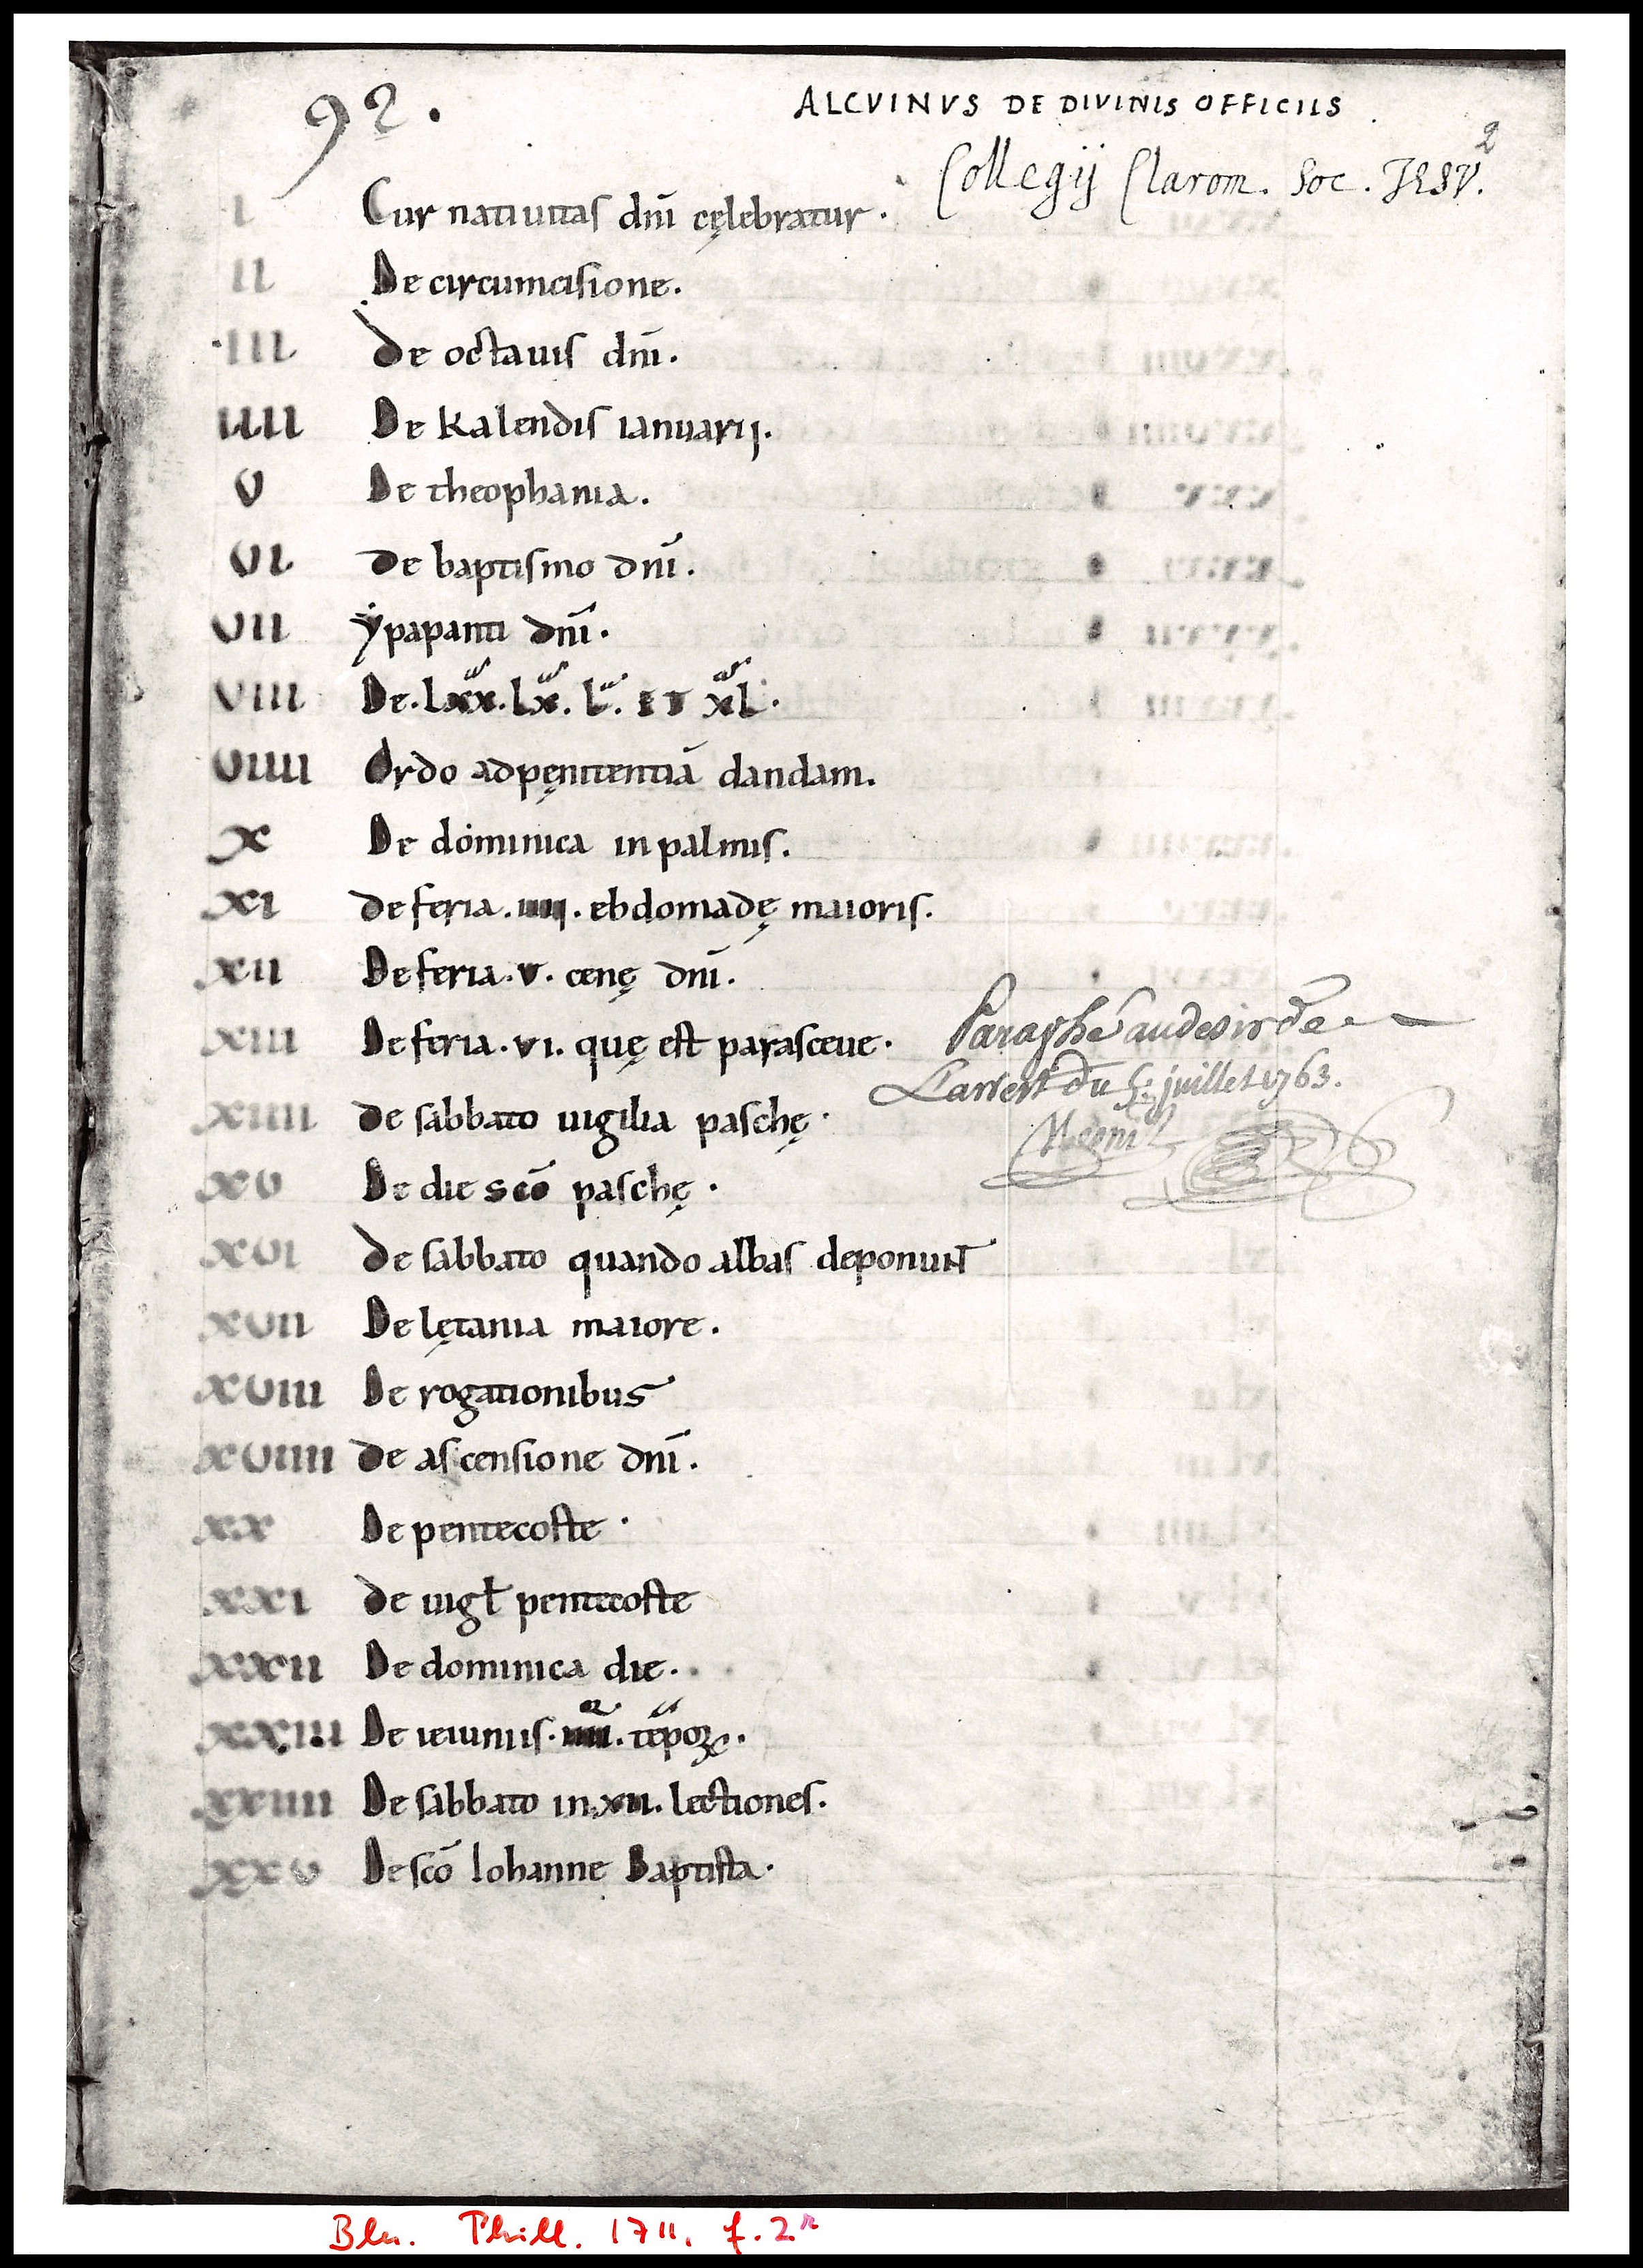 92.
ALCVINVS DE DIVINIS OFFICIIS
2
Collegij Clarom. Soc. JESV.
I Cur natiuitas dnī cęlebratur.
II De circumcisione.
III De octauis dnī.
IIII De Kalendis ianuarij.
V De theophania.
VI De baptismo dnī.
VII ẏpapanti dnī.
VIII De. lxx. lx. l. ET xl.
VIIII Ordo adpęnitentiā dandam.
X De dominica in palmis.
XI De feria. IIII. ebdomadę maioris.
XII De feria. V. cenę dnī.
XIII De feria. VI. quę est parasceue.
XIIII De sabbato uigilia paschę.
XV De die scō paschę.
XVI De sabbato quando albas deponuNT̄
XVII De lętania maiore.
XVIII De rogationibus
XVIIII De ascensione dnī.
XX De pentecoste.
XXI De uigł pentecoste
XXII De dominica die.
XXIII De ieiuniis. IIII. tēpoꝝ.
XXIIII De sabbato in. XII. lectiones.
XXV De scō Iohanne Baptista.
Paraphé au desir de
L'arrest du 5. juillet 1763.
Mesnil
Bln. Phill. 1711, f. 2r